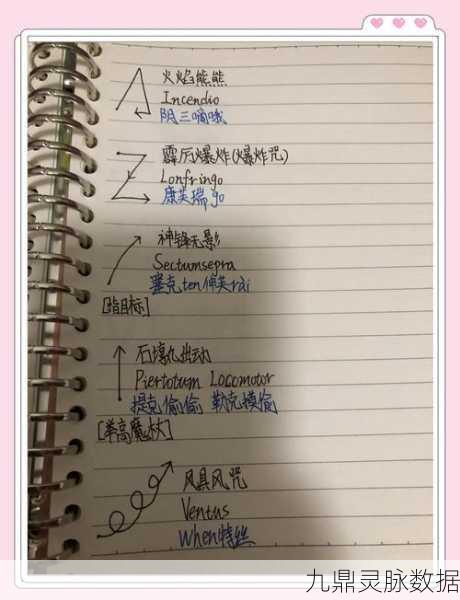 火焰熊熊
Incendio
阴三嘀哦
霹雳爆炸(爆炸咒)
Confringo
康芙瑞go
神锋无影
Sectumsepra
塞克ten伸芙rai
[指目标]
石墩出动
Piertotum Locomotor
提克偷偷 勒克摸偷
[举高魔杖]
风具风咒
Ventus
When特丝
九鼎灵脉数据